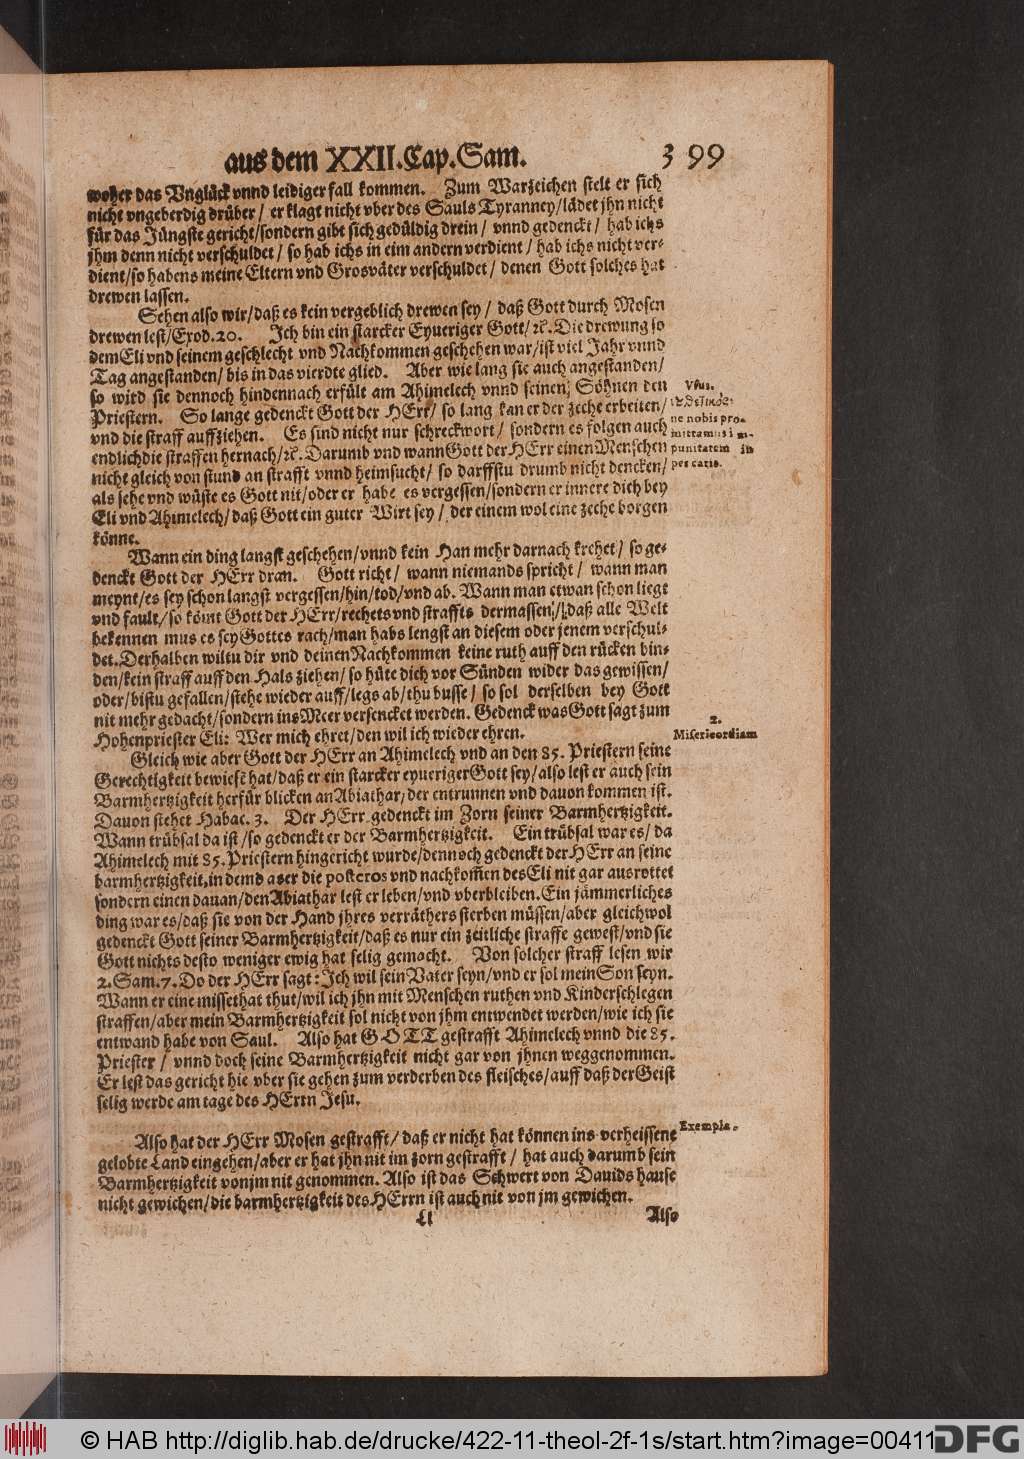 aus dem XXII. Cap. Sam. 399
woher das Vnglück vnnd leidiger fall kommen. Zum Warzeichen stelt er sich
nicht vngeberdig drüber / er klagt nicht vber des Sauls Tyranney / lädet jhn nicht
für das Jüngste gericht / sondern gibt sich gedüldig drein / vnnd gedenckt / hab ichs
jhm denn nicht verschuldet / so hab ichs in eim andern verdient / hab ichs nicht ver-
dient / so habens meine Eltern vnd Grosväter verschuldet / denen Gott solches hat
drewen lassen.
Sehen also wir / daß es kein vergeblich drewen sey / daß Gott durch Mosen
drewen lest / Exod. 20. Ich bin ein starcker Eyueriger Gott / ꝛc. Die drewung so
dem Eli vnd seinem geschlecht vnd Nachkommen geschehen war / ist viel Jahr vnnd
Tag angestanden / bis in das vierdte glied. Aber wie lang sie auch angestanden /
so wird sie dennoch hindennach erfült am Ahimelech vnnd seinen Söhnen den
Priestern. So lange gedenckt Gott der HErr / so lang kan er der zeche erbeiten /
vnd die straff auffziehen. Es sind nicht nur schreckwort / sondern es folgen auch
endlich die straffen hernach / ꝛc. Darumb vnd wann Gott der HErr einen Menschen
nicht gleich von stund an strafft vnnd heimsucht / so darffstu drumb nicht dencken /
als sehe vnd wüste es Gott nit / oder er habe es vergessen / sondern erinnere dich bey
Eli vnd Ahimelech / daß Gott ein guter Wirt sey / der einem wol eine zeche borgen
könne.
Vsus.
ne nobis pro-
mittamus im-
punitatem in
peccatis.
Wann ein ding langst geschehen / vnnd kein Han mehr darnach krehet / so ge-
denckt Gott der HErr dran. Gott richt / wann niemands spricht / wann man
meynt / es sey schon langst vergessen / hin / tod / vnd ab. Wann man etwan schon liegt
vnd fault / so kömt Gott der HErr / rechets vnd straffts dermassen / daß alle Welt
bekennen mus es sey Gottes rach / man habs lengst an diesem oder jenem verschul-
det. Derhalben wiltu dir vnd deinen Nachkommen keine ruth auff den rücken bin-
den / kein straff auff den Hals ziehen / so hüte dich vor Sünden wider das gewissen /
oder / bistu gefallen / stehe wieder auff / legs ab / thu busse / so sol derselben bey Gott
nit mehr gedacht / sondern ins Meer versencket werden. Gedenck was Gott sagt zum
Hohenpriester Eli: Wer mich ehret / den wil ich wieder ehren.
2.
Misericordiam
Gleich wie aber Gott der HErr an Ahimelech vnd an den 85. Priestern seine
Gerechtigkeit bewiesē hat / daß er ein starcker eyueriger Gott sey / also lest er auch sein
Barmhertzigkeit herfür blicken an Abiathar, der entrunnen vnd dauon kommen ist.
Dauon stehet Habac. 3. Der HErr gedenckt im Zorn seiner Barmhertzigkeit.
Wann trübsal da ist / so gedenckt er der Barmhertzigkeit. Ein trübsal war es / da
Ahimelech mit 85. Priestern hingericht wurde / dennoch gedenckt der HErr an seine
barmhertzigkeit, in dem daser die posteros vnd nachkom̃en des Eli nit gar ausrottet
sondern einen dauan / den Abiathar lest er leben / vnd vberbleiben. Ein jämmerliches
ding war es / daß sie von der Hand jhres verräthers sterben müssen / aber gleichwol
gedenckt Gott seiner Barmhertzigkeit / daß es nur ein zeitliche straffe gewest / vnd sie
Gott nichts desto weniger ewig hat selig gemacht. Von solcher straff lesen wir
2. Sam. 7. Do der HErr sagt: Ich wil sein Vater seyn / vnd er sol mein Son seyn.
Wann er eine missethat thut / wil ich jhn mit Menschen ruthen vnd Kinderschlegen
straffen / aber mein Barmhertzigkeit sol nicht von jhm entwendet werden / wie ich sie
entwand habe von Saul. Also hat GOTT gestrafft Ahimelech vnnd die 85.
Priester / vnnd doch seine Barmhertzigkeit nicht gar von jhnen weggenommen.
Er lest das gericht hie vber sie gehen zum verderben des fleisches / auff daß der Geist
selig werde am tage des HErrn Jesu.
Exempla.
Also hat der HErr Mosen gestrafft / daß er nicht hat können ins verheissene
gelobte Land eingehen / aber er hat jhn nit im zorn gestrafft / hat auch darumb sein
Barmhertzigkeit von jm nit genommen. Also ist das Schwert von Dauids hause
nicht gewichen / die barmhertzigkeit des HErrn ist auch nit von jm gewichen.
Ll Also
© HAB http://diglib.hab.de/drucke/422-11-theol-2f-1s/start.htm?image=00411
DFG